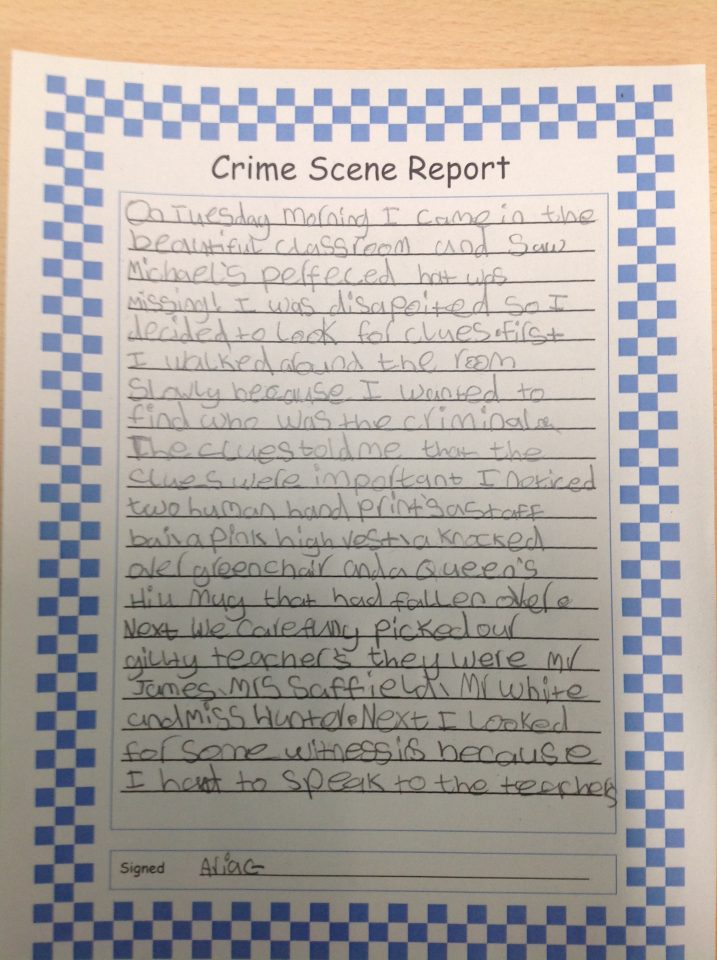 Crime Scene Report
On Tuesday Morning I came in the
beautiful classroom and saw
Michael's peffeced hat was
missing! I was disapoited so I
decided to look for clues. first
I walked around the room
Slowly because I wanted to
find who was the criminal.
The clues told me that the
clues were important I noticed
two human hand print's a staff
a pink high vest, a knocked
over green chair and a Queen's
Hill Mug that had fallen over.
Next We carefully picked our
gilty teacher's they were Mr
James, Mrs Saffield, Mr White
and Miss Hunter. Next I Looked
for some witnessis because
I had to speak to the teachers
Signed